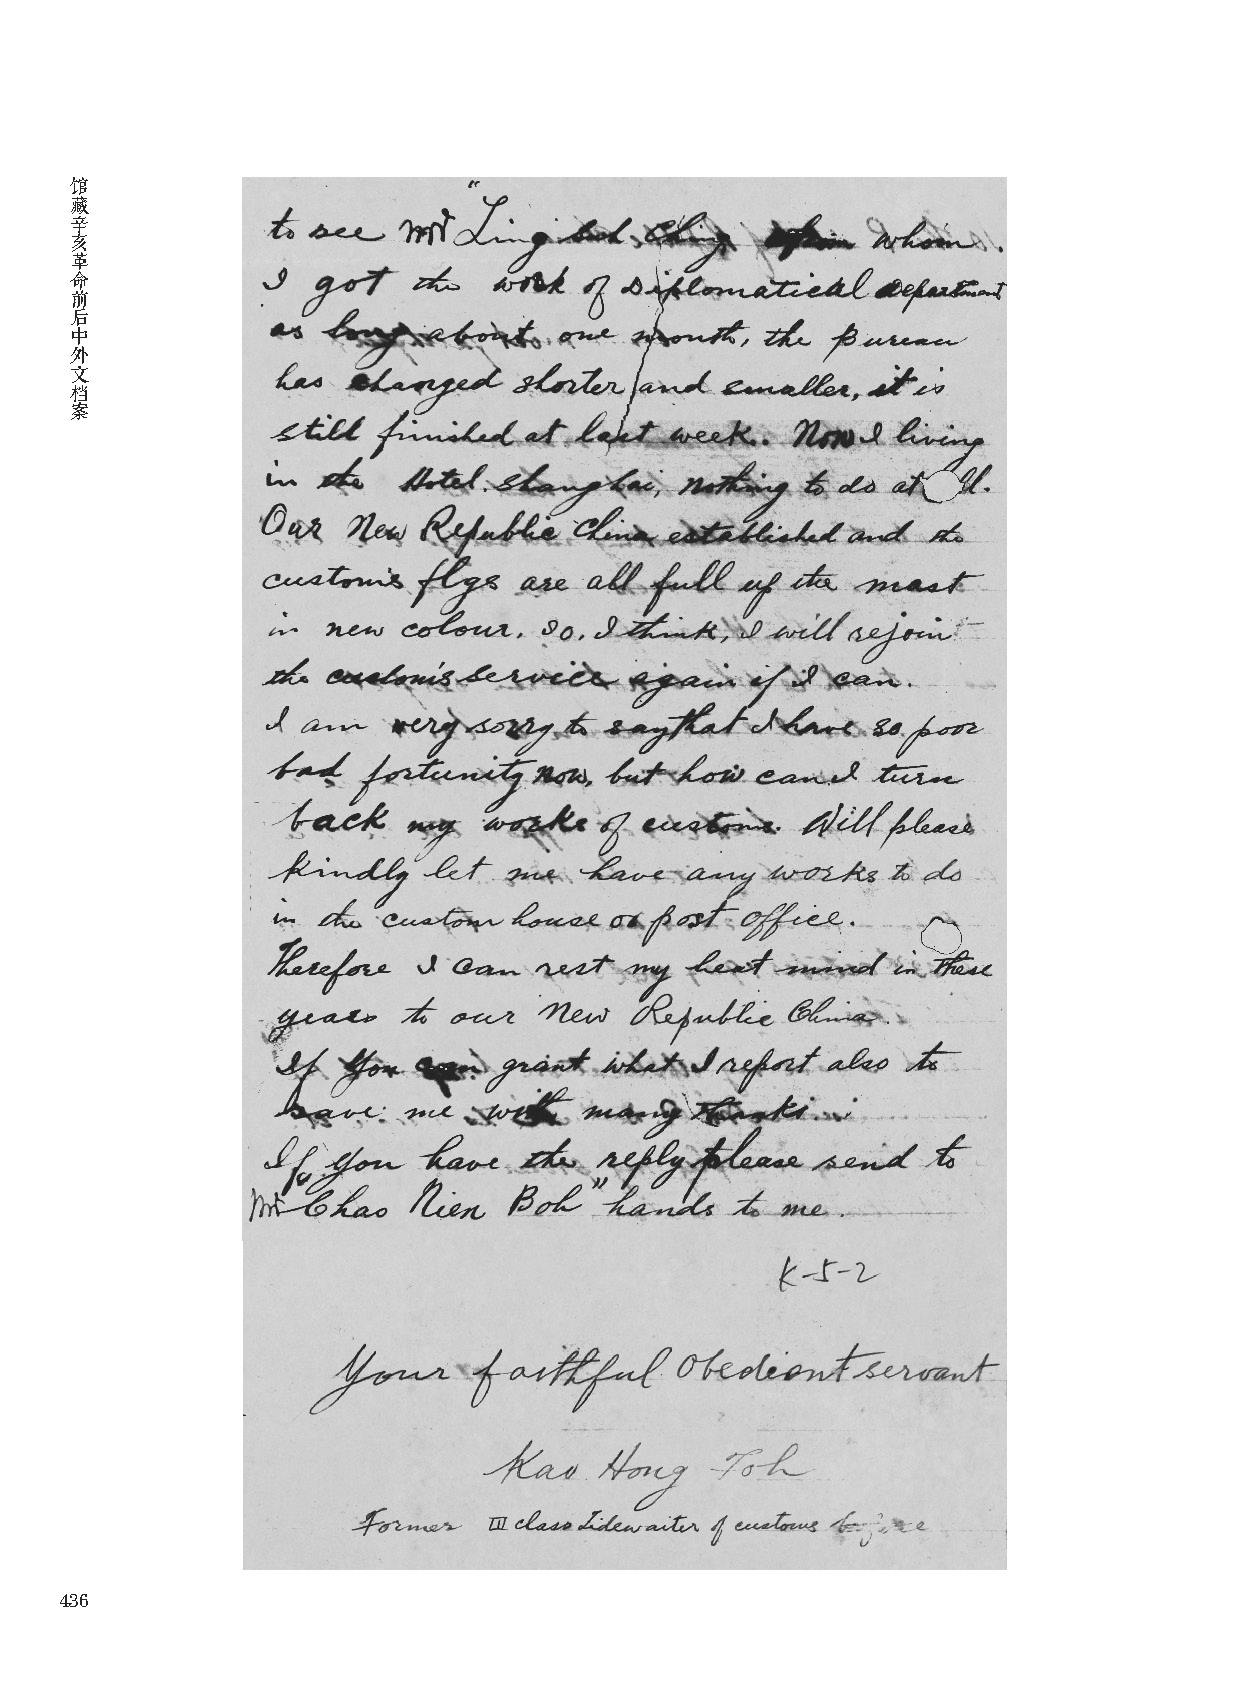 馆藏辛亥革命前后中外文档案
to see Mr "Ling Ching whom.
I got the work of Diplomatical department
as long about one month, the Bureau
has changed shorter and smaller, it is
still finished at last week. Now I living
in the Hotel. Shanghai, nothing to do at
Our New Republic China established and the
custom's flgs are all full up the mast
in new colour. So, I think, I will rejoin
the custom's service again if I can.
I am very sorry to say that I have so poor
bad fortunity now, but how can I turn
back my works of customs. Will please
kindly let me have any works to do
in the custom house or post office.
Therefore I can rest my heat mind in these
years to our New Republic China.
If you can grant what I report also to
save me with many thanks.
If you have the reply please send to
Mr Chao Nien Boh" hands to me.
K-5-2
Your faithful Obedient servant
Kao Hong Toh
Former III class Tidewaiter of customs before
436